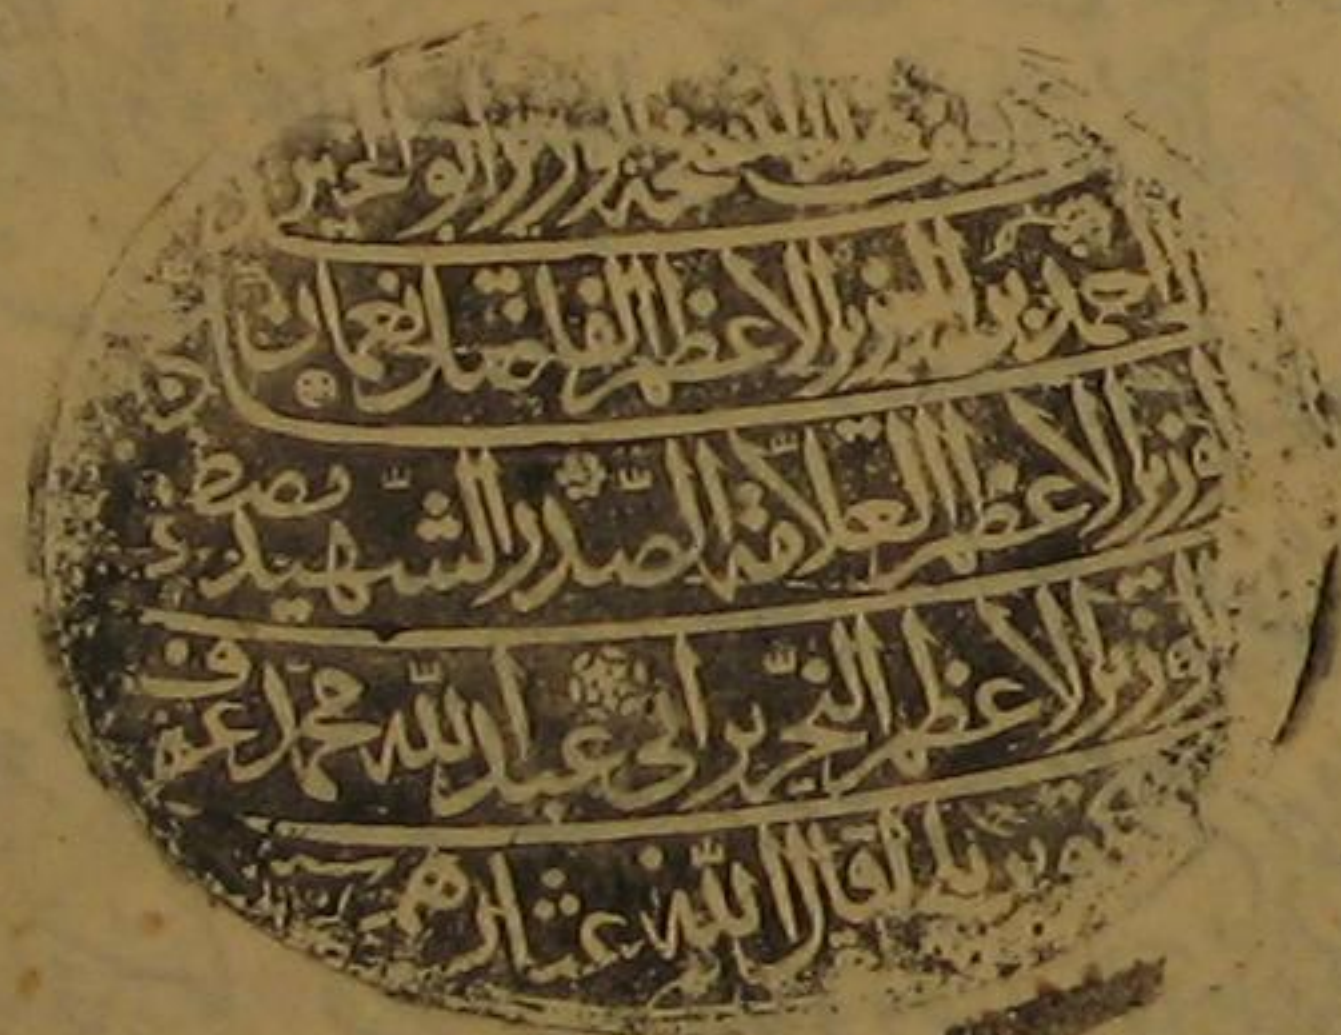 وزير ابو الخير
احمد بن الوزير الاعظم الفاضل نعمان بن
الوزير الاعظم العلامة الصدر الشهيد مصطفى
الوزير الاعظم النحرير ابي عبد الله محمد عرف
اقال الله عثارهم